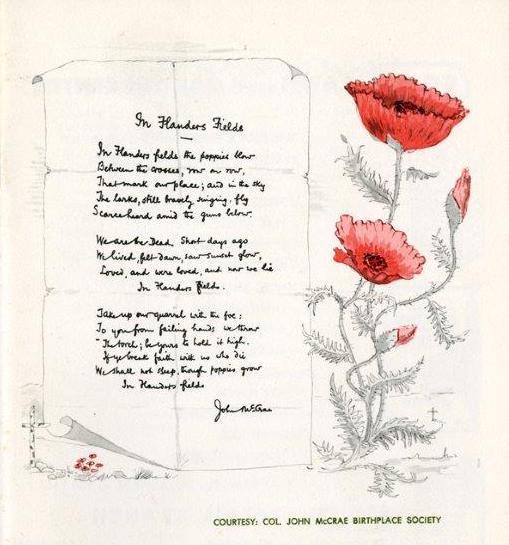 In Flanders Fields
In Flanders fields the poppies blow
Between the crosses, row on row,
That mark our place; and in the sky
The larks, still bravely singing, fly
Scarce heard amid the guns below.
We are the Dead. Short days ago
We lived, felt dawn, saw sunset glow,
Loved, and were loved, and now we lie
In Flanders fields.
Take up our quarrel with the foe:
To you from failing hands we throw
The torch; be yours to hold it high.
If ye break faith with us who die
We shall not sleep, though poppies grow
In Flanders fields
John McCrae
COURTESY: COL. JOHN McCRAE BIRTHPLACE SOCIETY